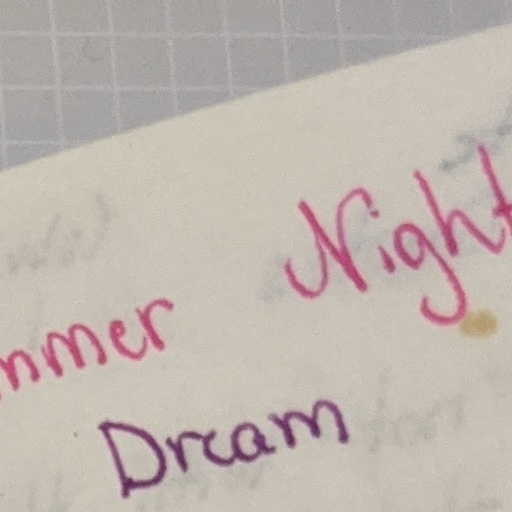 mmer Night
Dream